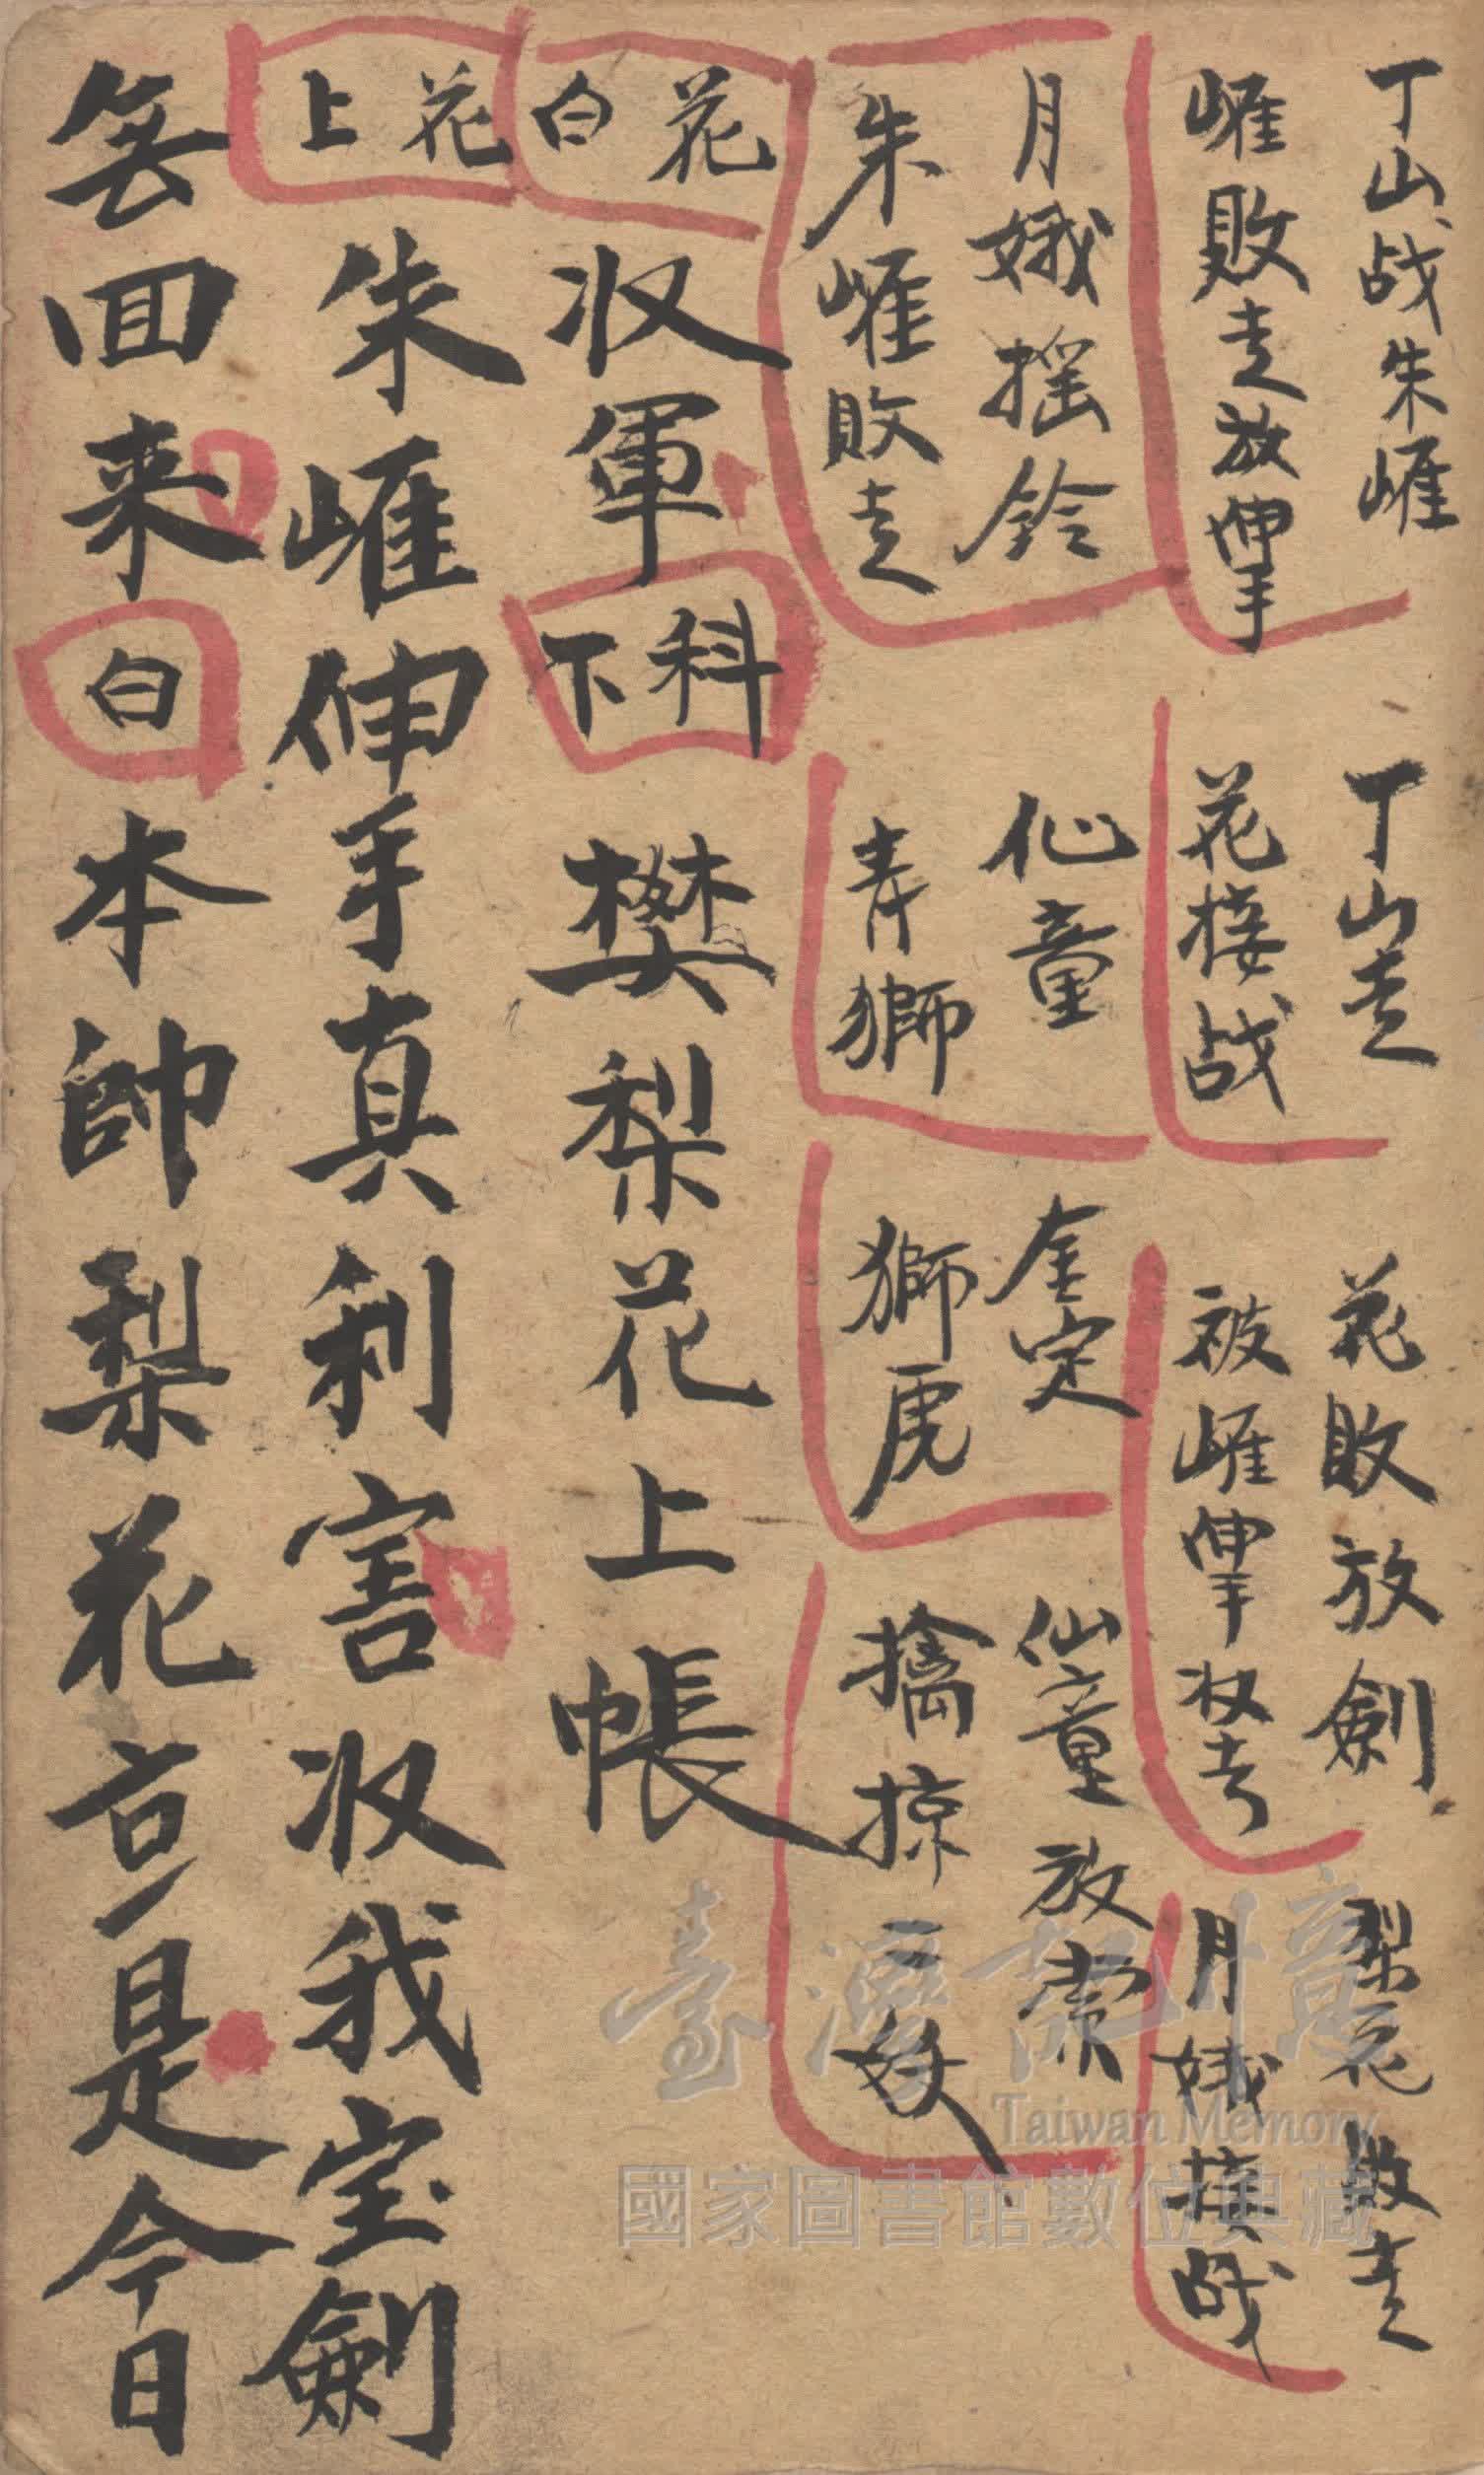 丁山战朱崕
崕敗走放伸手
丁山走
花接战
花敗放劍
被崕伸手收去
梨花敗走
月娥接战
月娥摇鈴
朱崕敗走
仙童
青獅
金定
獅虎
仙童放索
擒掠二妖
花白
收軍
科下
樊梨花上帳
花上
朱崕伸手真利害收我宝劍
無回来
白
本帥梨花
是今日
臺灣記憶
Taiwan Memory
國家圖書館數位典藏